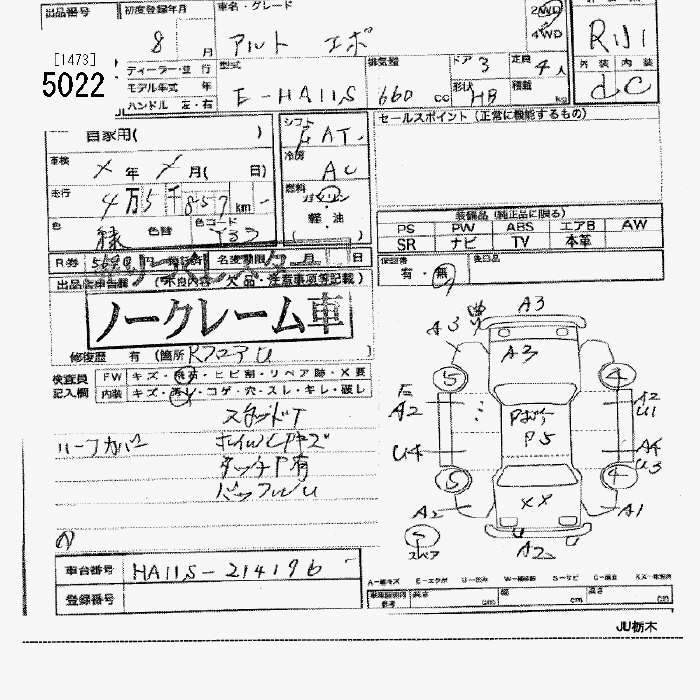 出品番号 初度登録年月 車名・グレード 2WD
8 月 アルト エポ 4WD R川
[1473]
5022
ティーラー・並行 型式 排気量 ドア 3 定員 4 人 外装 内装
モデル年式 年 E-HA11S 660 cc 形状 HB 積載 kg d C
ハンドル 左・右
自家用( ) シフト F AT セールスポイント (正常に機能するもの)
車検 メ 年 メ 月( 日) 冷房 AC
走行 4万5千857 km 燃料 ガソリン
軽油
( )
色 緑 色替 色コード
装備品 (純正品に限る)
PS PW ABS エアB AW
SR ナビ TV 本革
R券 預託済 名変期限 月 日
保証書 有・無 後日品
出品店申告欄 (不良内容・欠品・注意事項等記載)
ノークレーム車
修復歴 有 (箇所 Rフロアu
検査員 FW キズ・飛石・ヒビ割・リペア跡・X要
記入欄 内装 キズ・汚れ・コゲ・穴・スレ・キレ・破レ
スタッドT
ハーフカバー ホイルCPキズ
タッチP有
バッフルu
A3
A3 A3
5 4
A2 A2
U1
Pボケ
P5
U4 A4
U3
5 4
A2 XX A1
スペア U U
A2
車台番号 HA11S-214196
登録番号
A-線キズ E-エクボ U-凹み W-補修跡 S-サビ C-腐食 XX-交換済
長さ cm 幅 cm 高さ cm
JU栃木